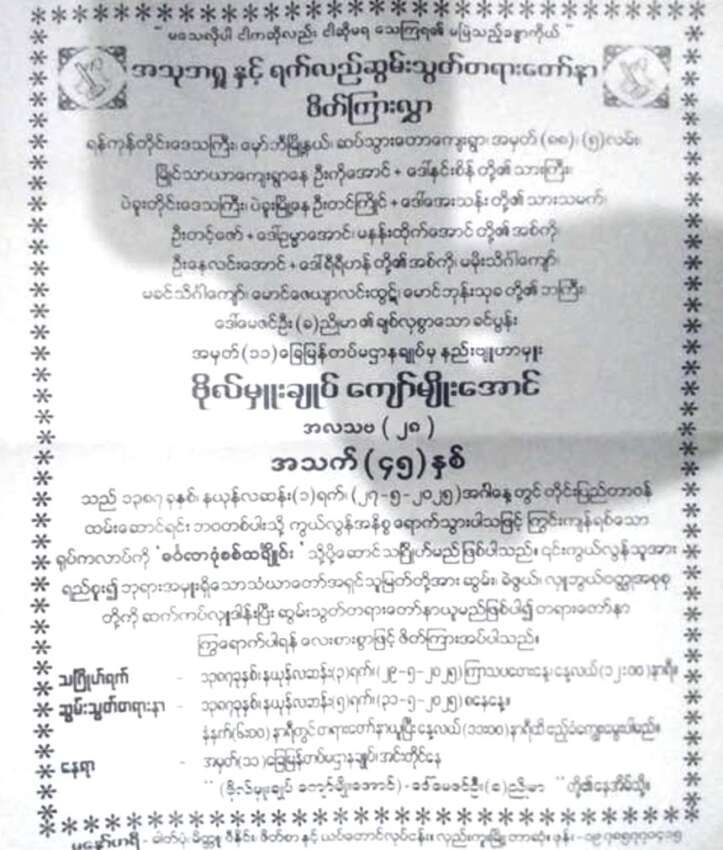 " မသေလိုပါ ငါကဆိုလည်း ငါဆိုမရ သေကြရ၏ မမြဲသည့်ခန္ဓာကိုယ် "
အသုဘရှု နှင့် ရက်လည်ဆွမ်းသွတ်တရားတော်နာ
ဖိတ်ကြားလွှာ
ရန်ကုန်တိုင်းဒေသကြီး၊ မှော်ဘီမြို့နယ်၊ ဆပ်သွားတောကျေးရွာ၊ အမှတ် (၈၈)၊ (၅)လမ်း
မြိုင်သာယာကျေးရွာနေ ဦးကိုအောင် + ဒေါ်နှင်းစိန် တို့၏ သားကြီး၊
ပဲခူးတိုင်းဒေသကြီး၊ ပဲခူးမြို့နေ ဦးတင်ကြိုင် + ဒေါ်အေးသန်း တို့၏ သားသမက်၊
ဦးတင့်ဇော် + ဒေါ်ဥမ္မာအောင်၊ မနန်းထိုက်အောင် တို့၏ အစ်ကို၊
ဦးနေလင်းအောင် + ဒေါ်ရီရီဟန် တို့၏ အစ်ကို၊ မမိုးသိင်္ဂါကျော်၊
မခင်သိင်္ဂါကျော်၊ မောင်ဇေယျာလင်းထွဋ်၊ မောင်ဘုန်းသုခ တို့၏ ဘကြီး၊
ဒေါ်မေဇင်ဦး (ခ) ညိုမာ ၏ ချစ်လှစွာသော ခင်ပွန်း
အမှတ် (၁၁) ခြေမြန်တပ်မဌာနချုပ်မှ နည်းဗျူဟာမှူး
ဗိုလ်မှူးချုပ် ကျော်မျိုးအောင်
အလသဗ ( ၂၈ )
အသက် (၄၅) နှစ်
သည် ၁၃၈၇ ခုနှစ်၊ နယုန်လဆန်း (၁) ရက်၊ (၂၇-၅-၂၀၂၅) အင်္ဂါနေ့တွင် တိုင်းပြည်တာဝန်
ထမ်းဆောင်ရင်း ဘဝတစ်ပါးသို့ ကွယ်လွန်အနိစ္စ ရောက်သွားပါသဖြင့် ကြွင်းကျန်ရစ်သော
ရုပ်ကလာပ်ကို 'ဓင်္ဂဏဝံ့စစ်သင်္ချိုင်း' သို့ပို့ဆောင်သင်္ဂြိုဟ်မည်ဖြစ်ပါသည်။ ၎င်းကွယ်လွန်သူအား
ရည်စူး၍ ဘုရားအမှူးရှိသောသံဃာတော်အရှင်သူမြတ်တို့အား ဆွမ်း၊ ခဲဖွယ်၊ လှူဖွယ်ဝတ္ထုအစုစု
တို့ကို ဆက်ကပ်လှူဒါန်းပြီး ဆွမ်းသွတ်တရားတော်နာယူမည်ဖြစ်ပါ၍ တရားတော်နာ
ကြွရောက်ပါရန် လေးစားစွာဖြင့် ဖိတ်ကြားအပ်ပါသည်။
သင်္ဂြိုဟ်ရက် - ၁၃၈၇ခုနှစ်၊ နယုန်လဆန်း(၃)ရက်၊ (၂၉-၅-၂၀၂၅) ကြာသပတေးနေ့၊ နေ့လယ် (၁၂:၀၀) နာရီ။
ဆွမ်းသွတ်တရားနာ - ၁၃၈၇ခုနှစ်၊ နယုန်လဆန်း(၅)ရက်၊ (၃၁-၅-၂၀၂၅) စနေနေ့။
နံနက်(၆:၀၀) နာရီတွင် တရားတော်နာယူပြီး နေ့လယ် (၁၁:၀၀) နာရီထိ ဧည့်ခံကျွေးမွေးပါမည်။
နေရာ - အမှတ်(၁၁) ခြေမြန်တပ်မဌာနချုပ်၊ အင်းတိုင်နေ
" (ဗိုလ်မှူးချုပ် ကျော်မျိုးအောင်) - ဒေါ်မေဇင်ဦး (ခ) ညိုမာ " တို့၏နေအိမ်သို့။
မနော်ဟရီ - ဓါတ်ပုံ၊ မိတ္တူ၊ ဗီနိုင်း၊ ဖိတ်စာ နှင့် ယပ်တောင်လုပ်ငန်း၊ လှည်းကူးမြို့